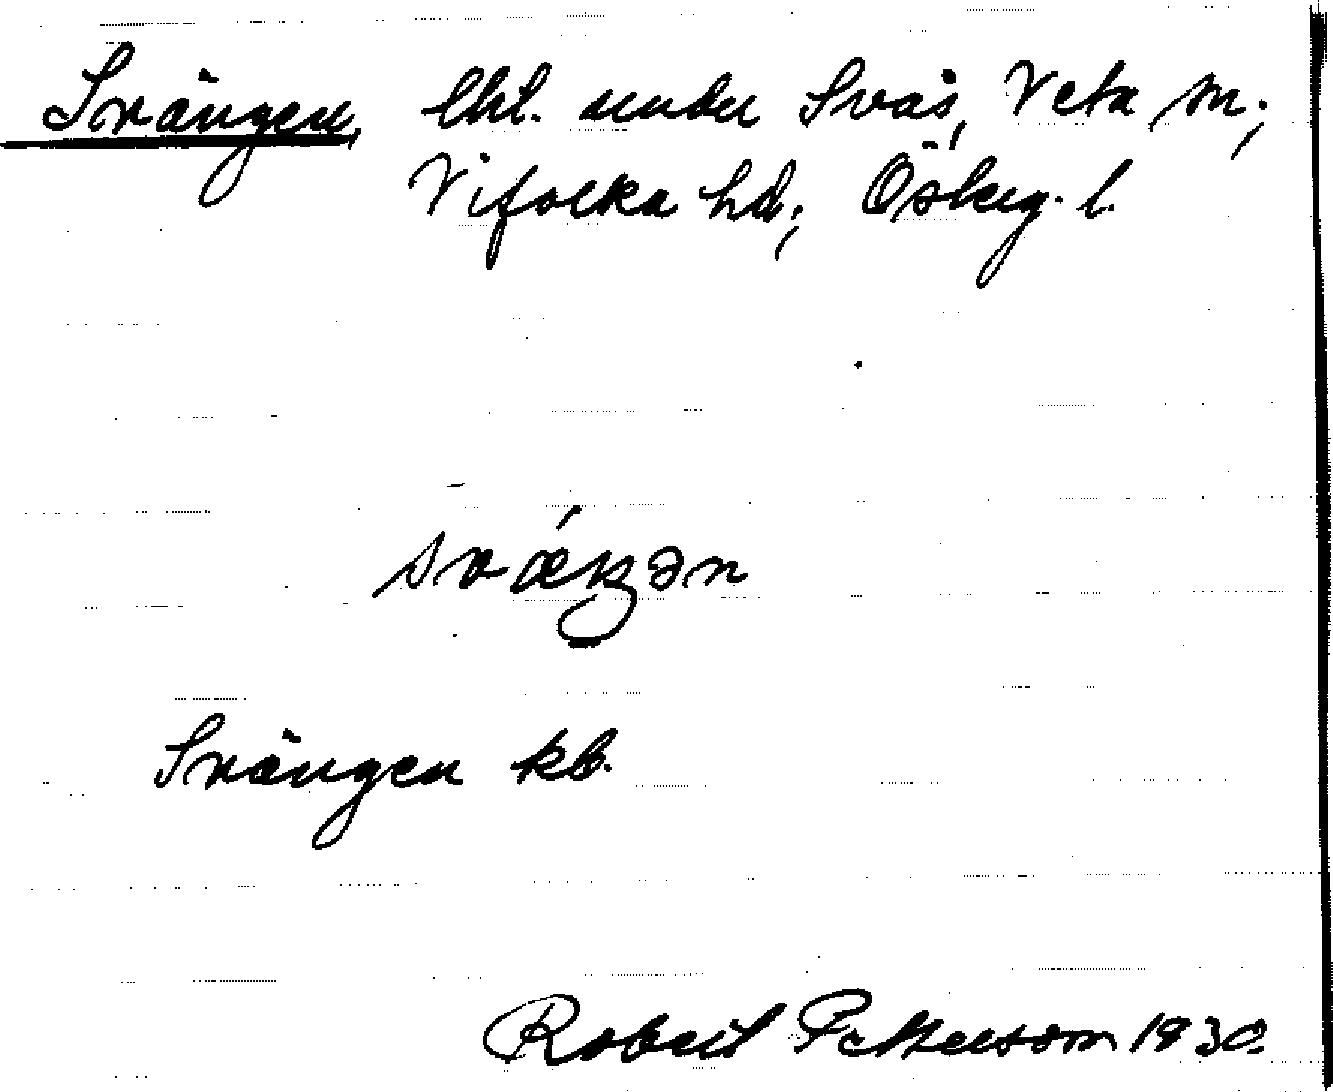 Svängen, lht. under Svås, Veta sn;
Vifolka hd; Österg. l.
sváŋən
Svängen kb.
Robert Pettersson 1930.